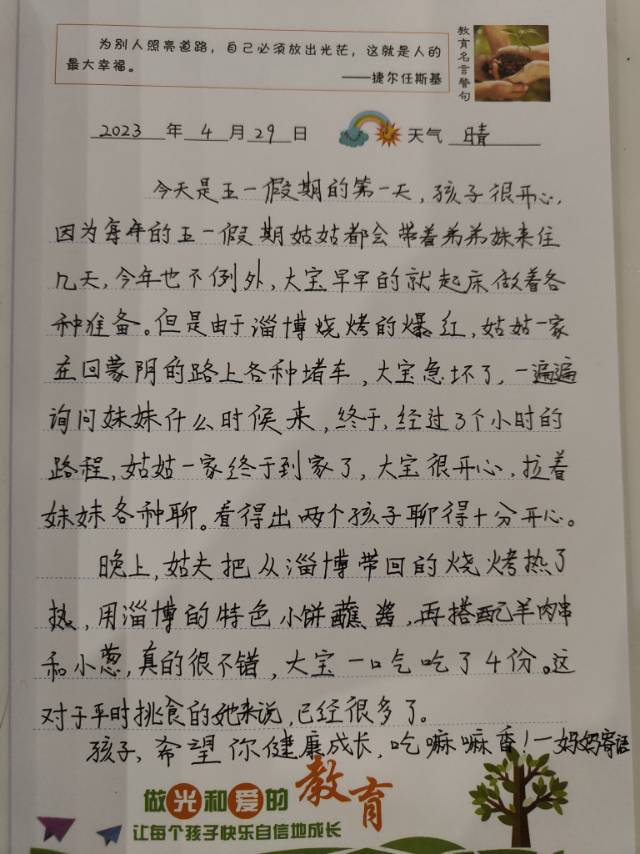 为别人照亮道路，自己必须放出光芒，这就是人的
最大幸福。
——捷尔任斯基
教育名言警句
2023 年 4 月 29 日 天气 晴
今天是五一假期的第一天，孩子很开心，
因为每年的五一假期姑姑都会带着弟弟妹来住
几天，今年也不例外，大宝早早的就起床做着各
种准备。但是由于淄博烧烤的爆红，姑姑一家
在回蒙阴的路上各种堵车，大宝急坏了，一遍遍
询问妹妹什么时候来，终于，经过3个小时的
路程，姑姑一家终于到家了，大宝很开心，拉着
妹妹各种聊。看得出两个孩子聊得十分开心。
晚上，姑夫把从淄博带回的烧烤热了
热，用淄博的特色小饼蘸酱，再搭配羊肉串
和小葱，真的很不错，大宝一口气吃了4份。这
对于平时挑食的她来说，已经很多了。
孩子，希望你健康成长，吃嘛嘛香！—妈妈寄语
做光和爱的教育
让每个孩子快乐自信地成长